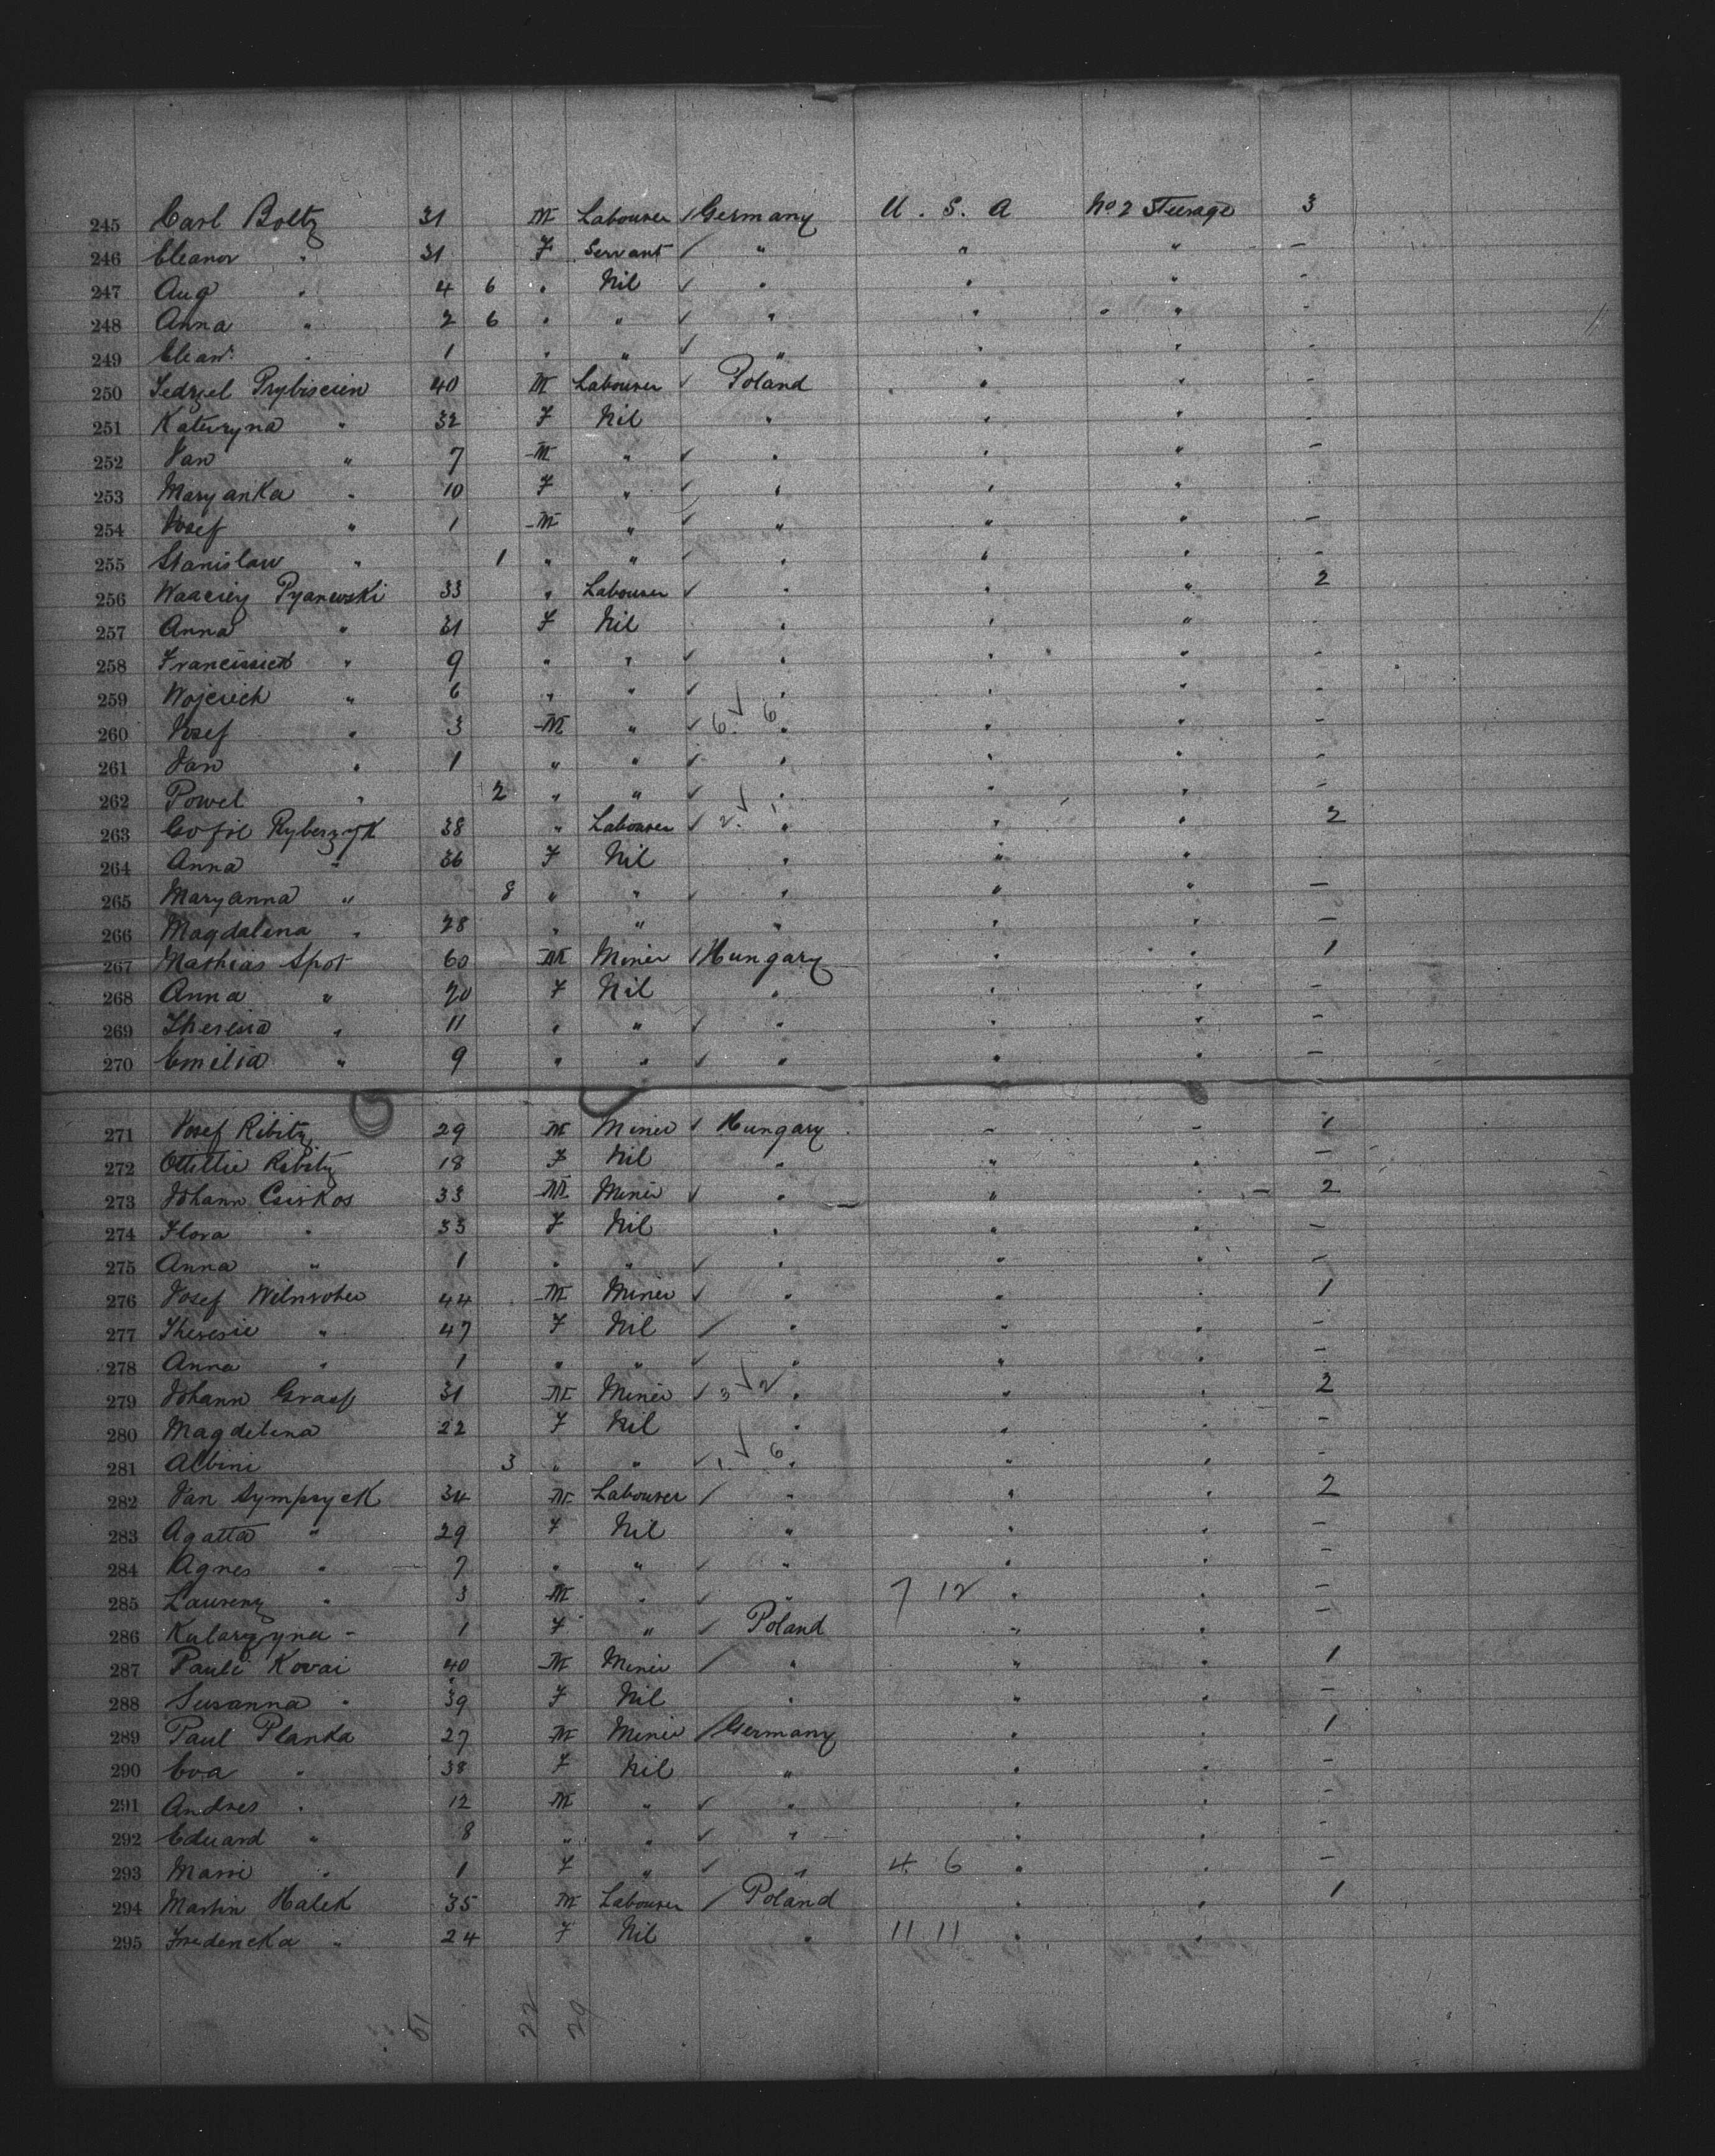 245 Carl Boltz 31 M Labourer Germany U.S.A No 2 Steerage 3
246 Eleanor " 31 F Servant " " " –
247 Aug " 4 6 " Nil " " " –
248 Anna " 2 6 " " " " " –
249 Elean. " 1 " " " " " –
250 Prybiscien 40 M Labourer Poland " " –
251 Kateryna " 32 F Nil " " " –
252 Jan " 7 M " " " " –
253 Maryanka " 10 F " " " " –
254 Josef " 1 M " " " " –
255 Stanislaw " 1 " " " " " –
256 Pyanewski 33 " Labourer " " " 2
257 Anna " 31 F Nil " " " –
258 " 9 " " " " " –
259 Wojciech " 6 " " " " " –
260 Josef " 3 M " 6. 6 " " " –
261 Jan " 1 " " " " " –
262 Powel " 2 " " " " " –
263 Ryberzyk 38 " Labourer 2. 1 " " " 2
264 Anna " 36 F Nil " " "
265 Maryanna " 8 " " " " " –
266 Magdalena " 28 " " " " " –
267 Mathias Spot 60 M Miner Hungary " " 1
268 Anna " 20 F Nil " " " –
269 Theresia " 11 " " " " " –
270 Emilia " 9 " " " " " –
271 Josef Ribitz 29 M Miner Hungary " " 1
272 Ottillie Ribitz 18 F Nil " " " –
273 Johann Csirkos 33 M Miner " " " – 2
274 Flora " 33 F Nil " " " –
275 Anna " 1 " " " " " –
276 Josef 44 M Miner " " " 1
277 Theresie " 47 F Nil " " " –
278 Anna " 1 " " " " " –
279 Johann Graef 31 M Miner 3 2 " " " 2
280 Magdelena 22 F Nil " " " –
281 Albini 3 " " 1. 6 " " " –
282 Jan Sympsyck 34 M Labourer " " " 2
283 Agatta " 29 F Nil " " " –
284 Agnes " 7 " " " " " –
285 Laurenz " 3 M " " 7 12 " " –
286 Katarzyna – 1 F " Poland " " –
287 Pauli Kovai 40 M Miner " " " 1
288 Susanna " 39 F Nil " " " –
289 Paul Planka 27 M Miner Germany " " 1
290 Eva " 38 F Nil " " " –
291 Andres " 12 M " " " " –
292 Eduard " 8 " " " " " –
293 Marie " 1 F " " 4 6 " " –
294 Martin Halek 35 M Labourer Poland " " 1
295 Fredericka " 24 F Nil " 11 11 " "
51 22 29